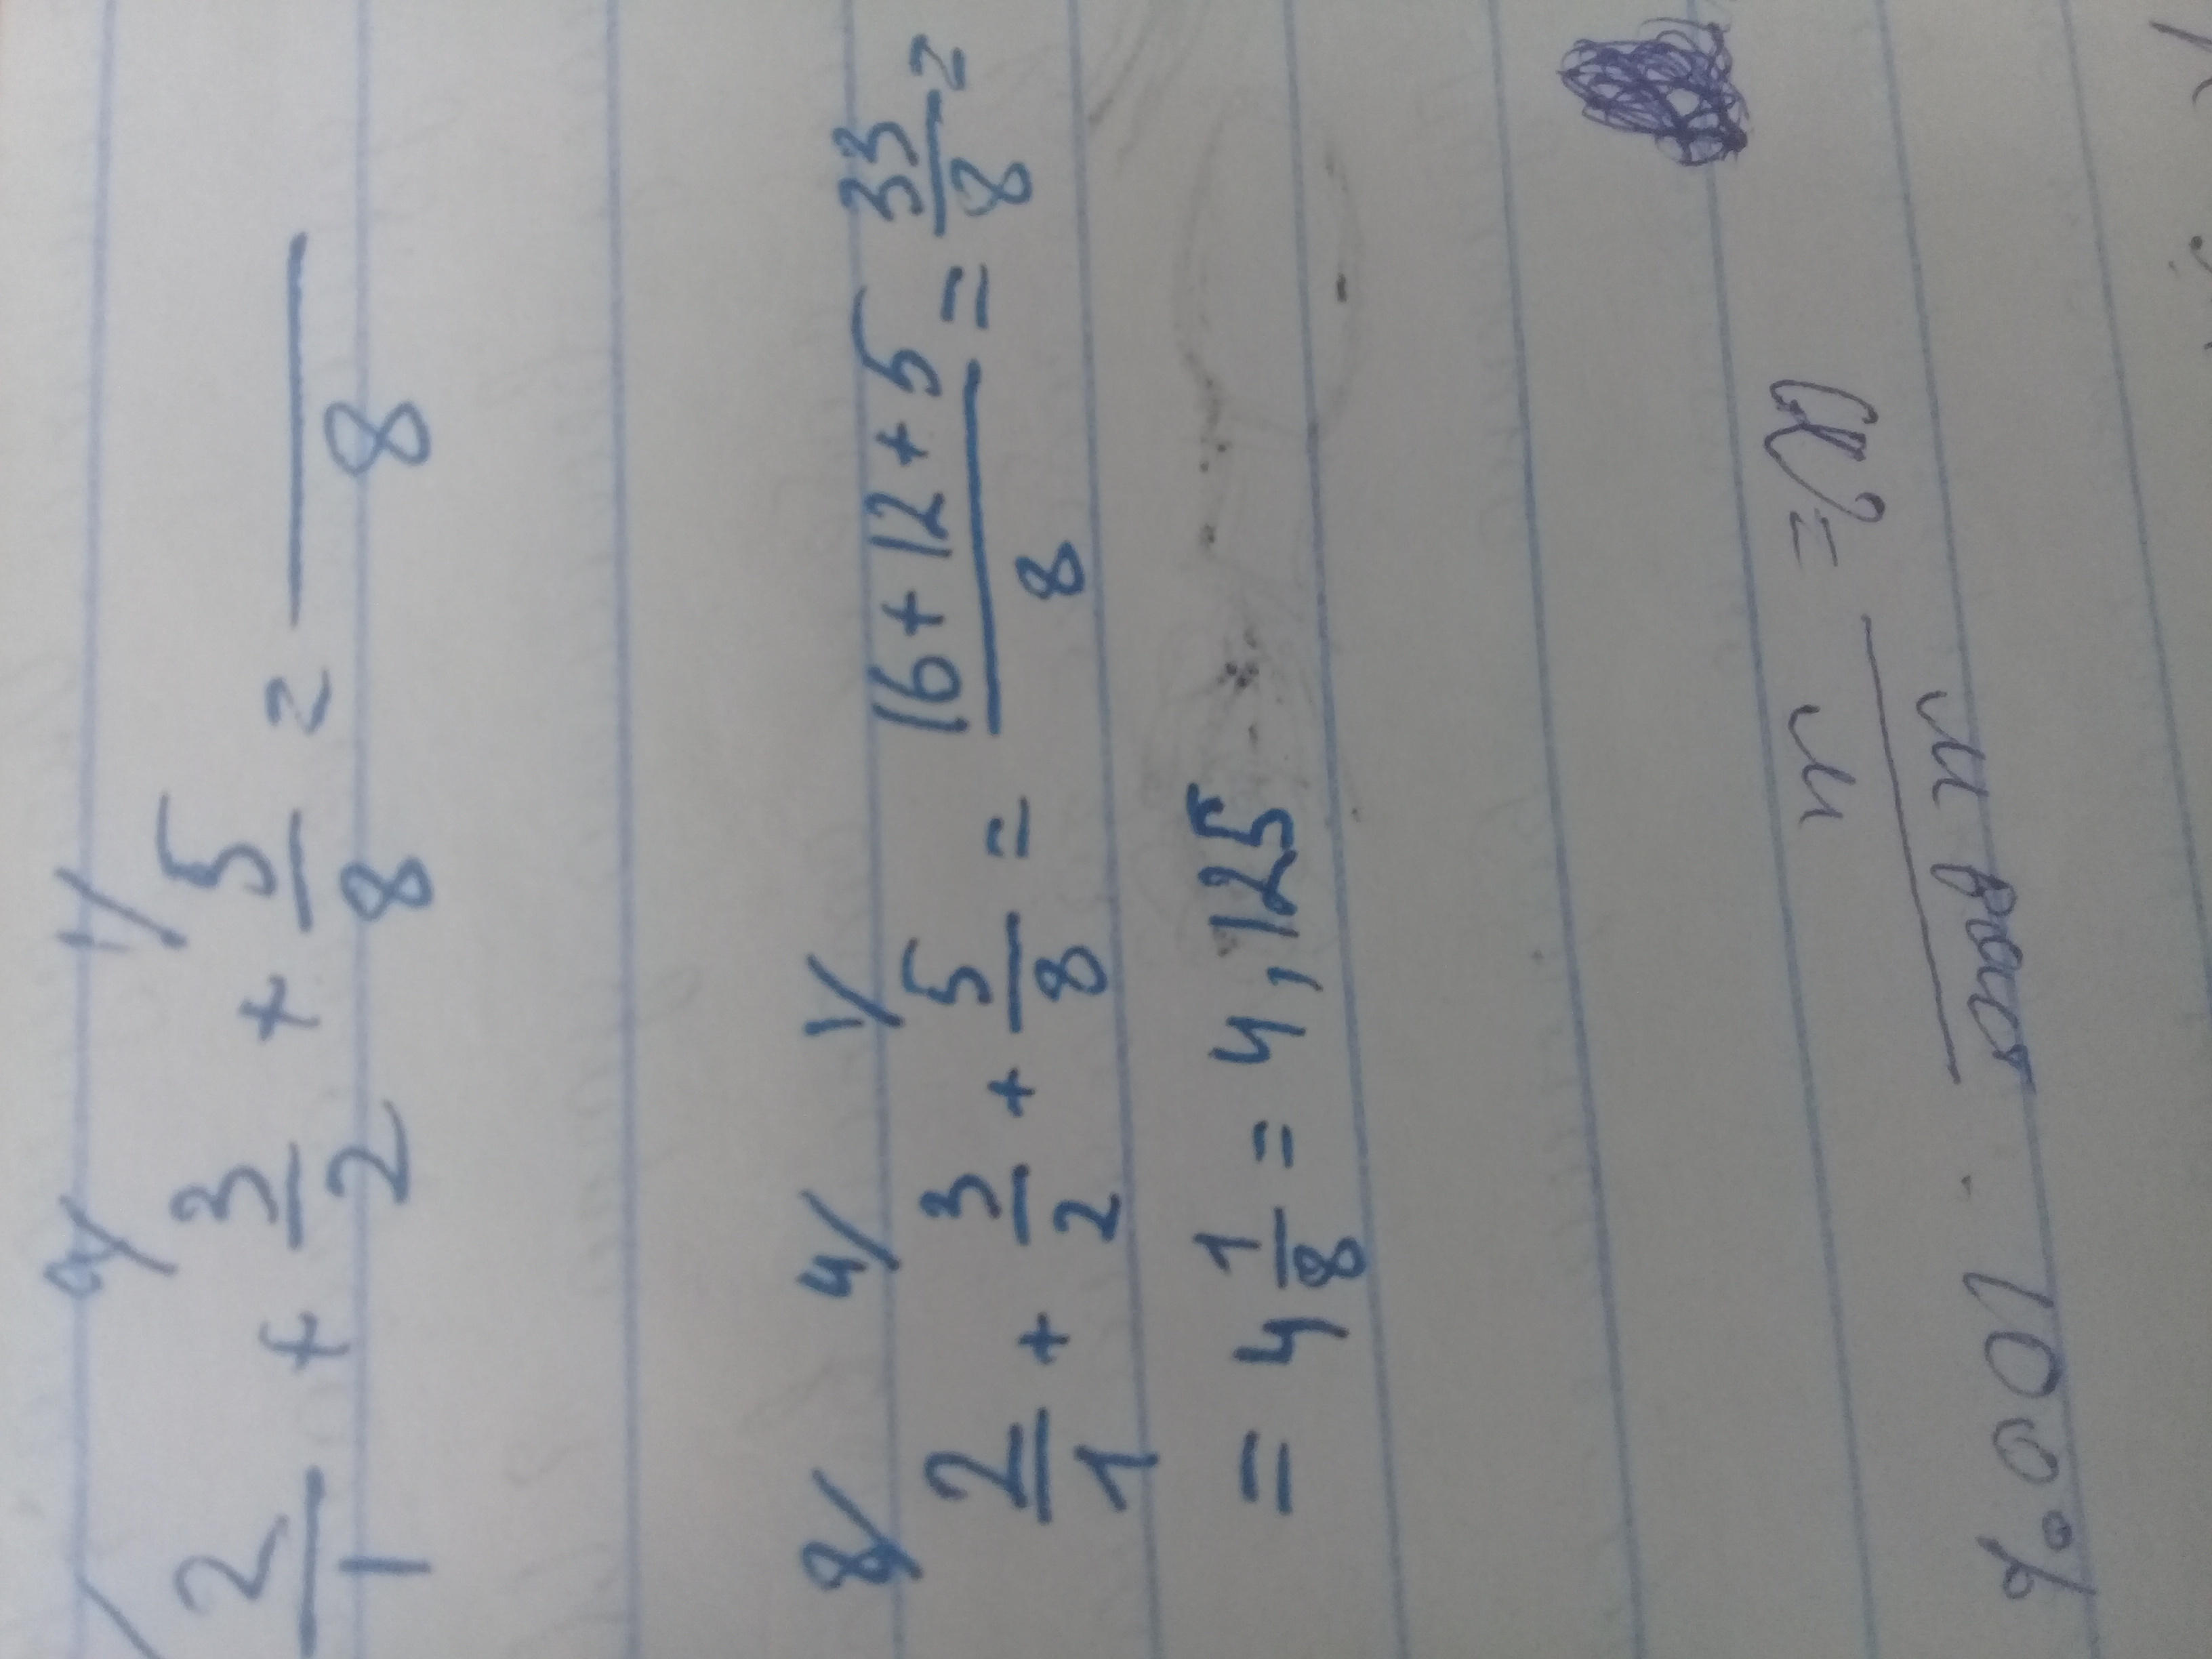 4/ 1/
2/1 + 3/2 + 5/8 = —/8
8/ 4/ 1/
2/1 + 3/2 + 5/8 = (16+12+5)/8 = 33/8 =
= 4 1/8 = 4,125
m
m раст
· 100%